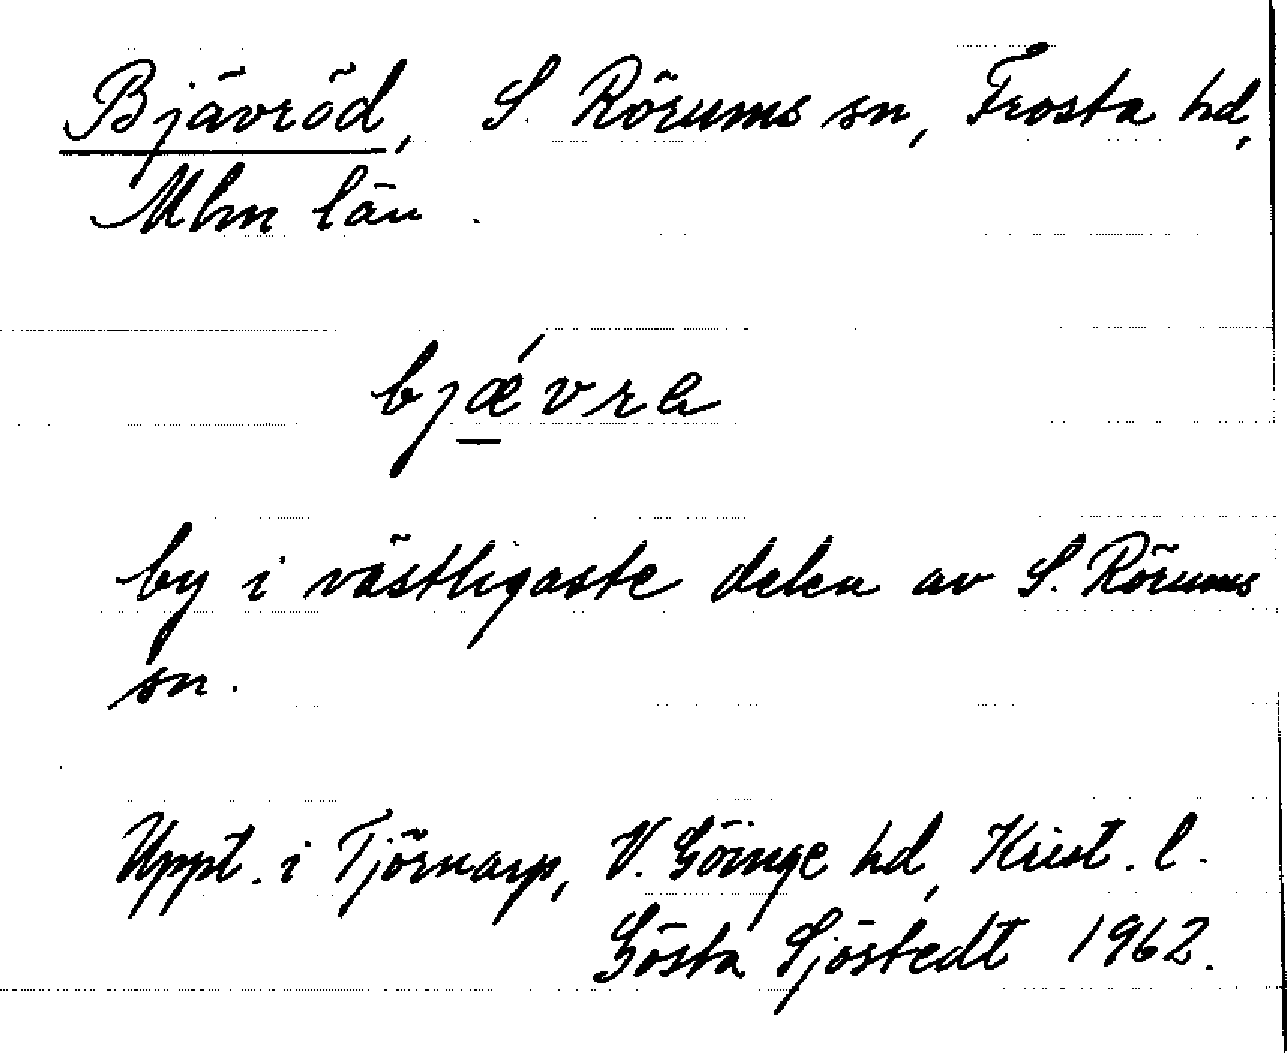 Bjävröd, S. Rörums sn, Frosta hd,
Mlm län.
bjǽvra
by i västligaste delen av S. Rörums
sn.
Uppt. i Tjörnarp, V. Göinge hd, Krist. l.
Gösta Sjöstedt 1962.